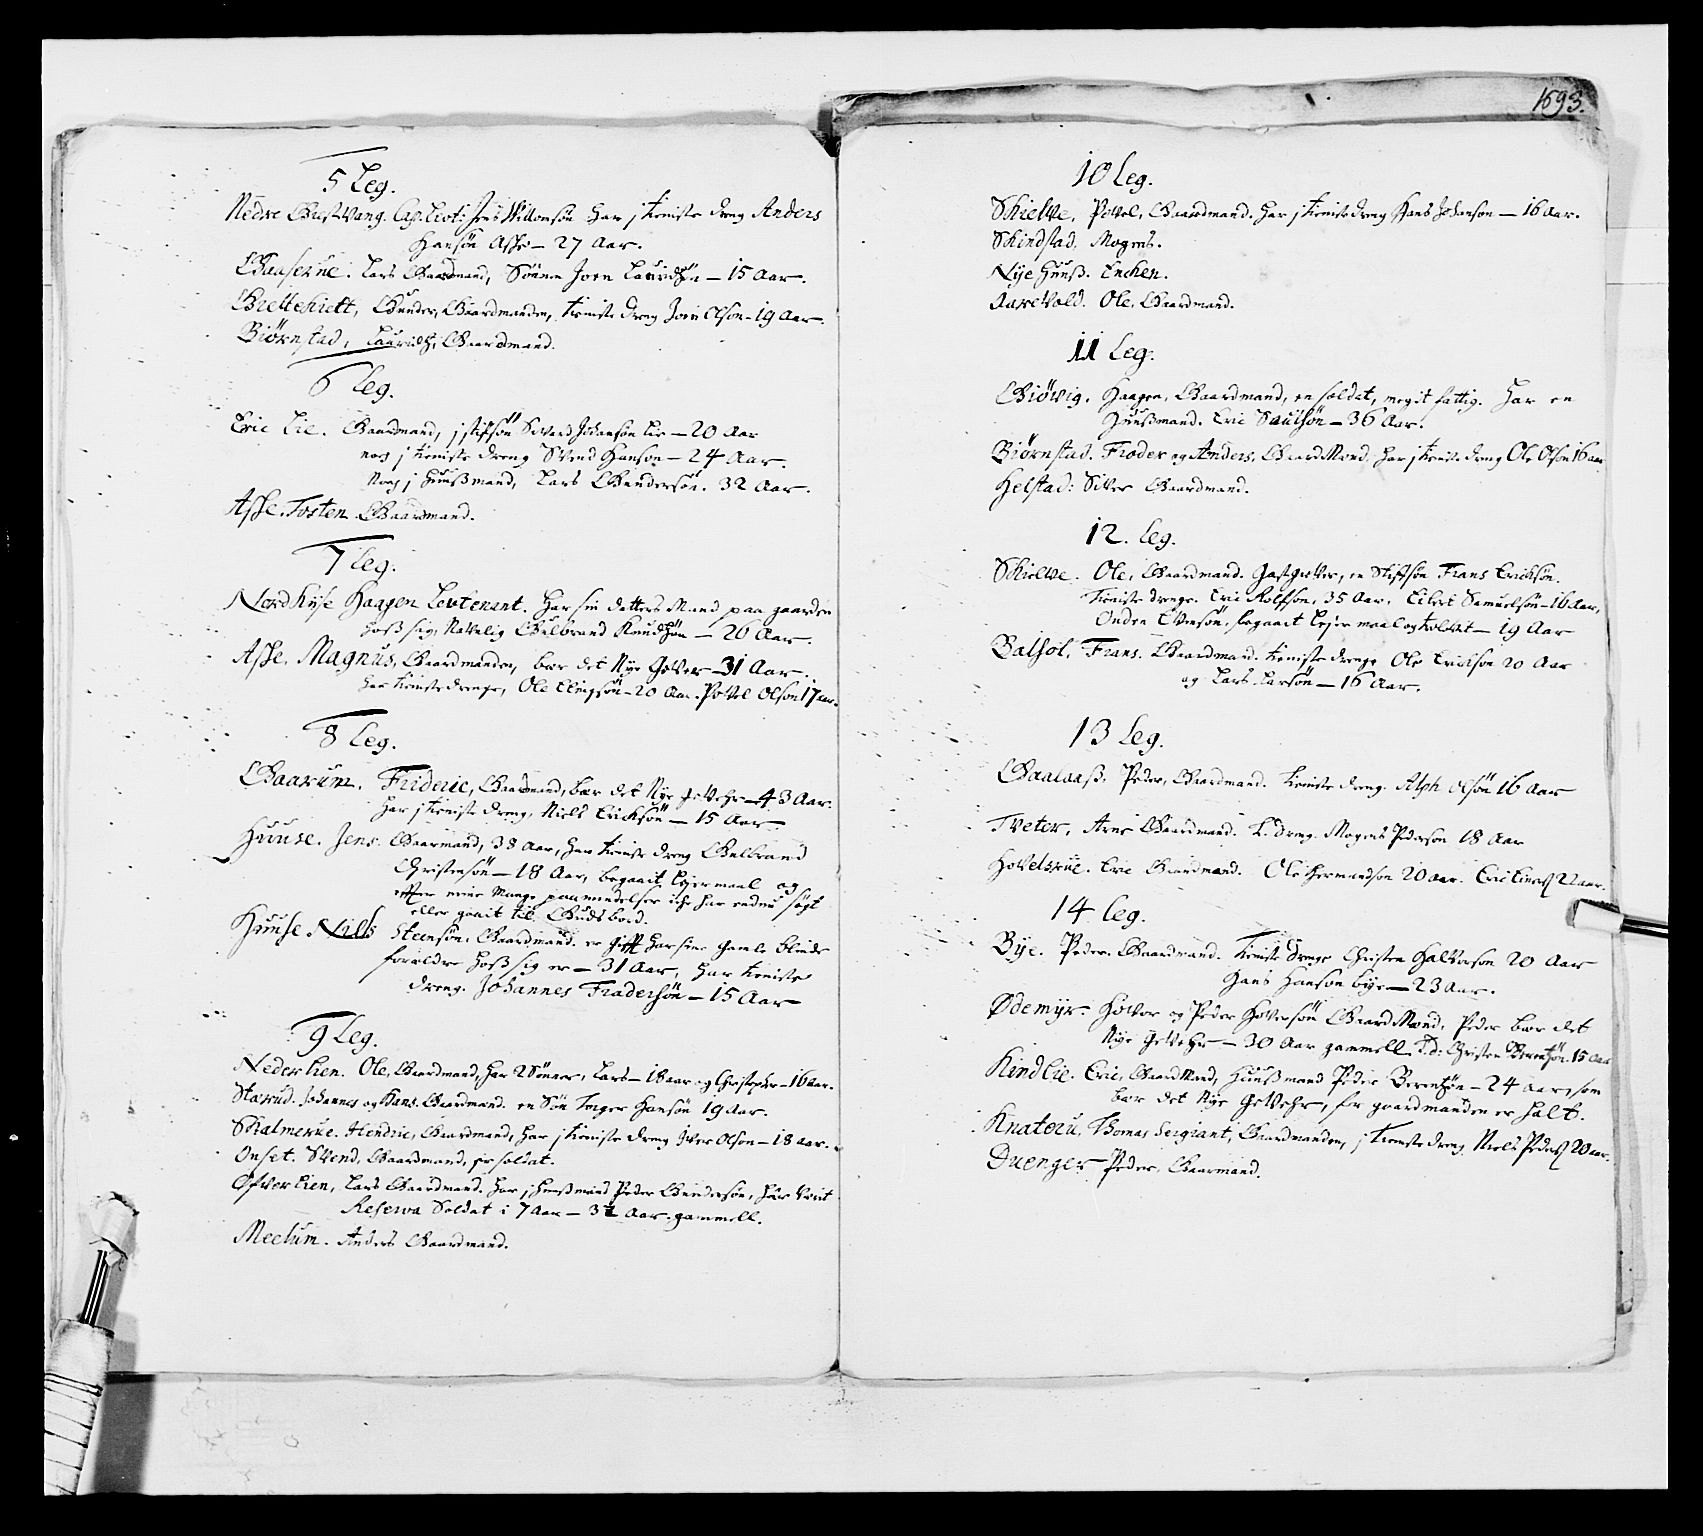 5 Leg.
Nedre Giestvang. Cap. Leut: Jens Willomsøn har j tieniste dreng Anders
Hansøn Asche – 27 Aar.
Gaaserue. Lars Gaardmand, Sønnen Joen Lauridsøn – 15 Aar.
Grettehiett, Gunder, Gaardmanden, tieniste dreng Joen Olson – 19 Aar.
Biørnstad, Lauridtz, Gaardmand.
6 Leg.
Eric Lie. Gaardmand, j stifsøn Siverdt Johansøn Lie – 20 Aar
nog j tieniste dreng Svend Hanson – 24 Aar.
Nog j Huusmand, Lars Gundersøn. 32 Aar.
Asche. Tosten Gaardmand.
7 Leg.
Nordhye Haagen Levtenant. Har sin datters Mand paa gaarden
hoss sig, Navnlig Gulbrand Knudsøn – 26 Aar.
Asche, Magnus, Gaardmanden, bær det Nye Gever – 31 Aar.
har tieniste drenge, Ole Elingsøn – 20 Aar. Povel Olson 17 aar.
8 Leg.
Gaarum. Frideric, Gaardmand, bær det Nye Gevehr – 43 Aar.
har j tieniste dreng, Niels Ericksøn – 15 Aar.
Huuse. Jens. Gaarmand, 38 Aar, har tieniste dreng Gulbrand
Christensøn – 18 Aar, begaait Leiermaal og
effter mine Mange paamindelser iche har endnu søgt
eller gaait til Guds bord.
Huuse Niels Steensøn. Gaardmand. er gifft har sine gamle blinde
forældre hoss sig er – 31 Aar, har tieniste
dreng. Johannes Fradersøn – 15 Aar
9 Leg.
Nederlien. Ole, Gaardmand, har 2 Sønner, Lars – 18 aar og Christopher – 16 Aar.
Starud. Johannes og Hans. Gaardmænd. en Søn Torger Hansøn 19 Aar.
Skalmerue. Hendric, Gaardmand, har j tieniste dreng Iver Olson – 18 aar.
Onset. Svend, Gaardmand, er soldat.
Ofverlien, Lars Gaardmand. har j huusmand Peder Gundersøn, har verit
Reserva Soldat i 7 Aar – 32 Aar gammell.
Meelum. Anders Gaardmand.
1693.
10 Leg.
Skielve, Povel, Gaardmand. har j tieniste dreng Hans Johanson – 16 Aar.
Skindstad, Mogens.
Nye Huuss. Enchen.
Aarevold. Ole, Gaardmand.
11 Leg.
Giøvig. Haagen, Gaardmand, en soldat, megit fattig. Har en
Huussmand. Eric Saulsøn – 36 Aar.
Biørnstad. Frader og Anders, Gaardmend, har j tieniste dreng Ole Olson 16 aar
Helstad: Siver Gaardmand.
12. Leg.
Skielve. Ole, Gaardmand. Gastgiever, en Stifsøn Frans Ericksøn.
tieniste drenge. Eric Rolfson, 35 Aar, Eilert Samuelsøn – 16 Aar,
Onden Evensøn, begaait Lejermaal og tolvet – 19 Aar
Balsøl, Frans. Gaardmand. tieniste drenge Ole Erickson 20 Aar
og Lars Larsøn – 16 Aar.
13 Leg.
Gaalaass. Peder, Gaardmand. tieniste dreng. Alph Olsøn 16 Aar
Tveter, Arne Gaardmand. t. dreng. Mogens Pederson 18 Aar
Hovelsrue. Eric Gaardmand. Ole Hermandson 20 aar. Eric Einers. 22 aar.
14 Leg.
Bye. Peder. Gaardmand. tieniste drenge Christen Halvorson 20 Aar
Hans Hanson bye – 23 Aar.
Ødemyr. Hover og Peder Hoversøn Gaardmend, Peder bær det
Nye Gevehr – 30 Aar gammell. T. d: Christen Berentsøn. 15 Aar
Kindlie. Eric, Gaardmand, Huussmand Peder Berentsøn – 24 Aar, som
bær det Nye Gevehr, for gaardmanden er halt.
Knatteru, Thomas Sergiant, Gaardmanden, j tieniste dreng Niels Peders. 20 aar.
Duenger Peder, Gaarmand.